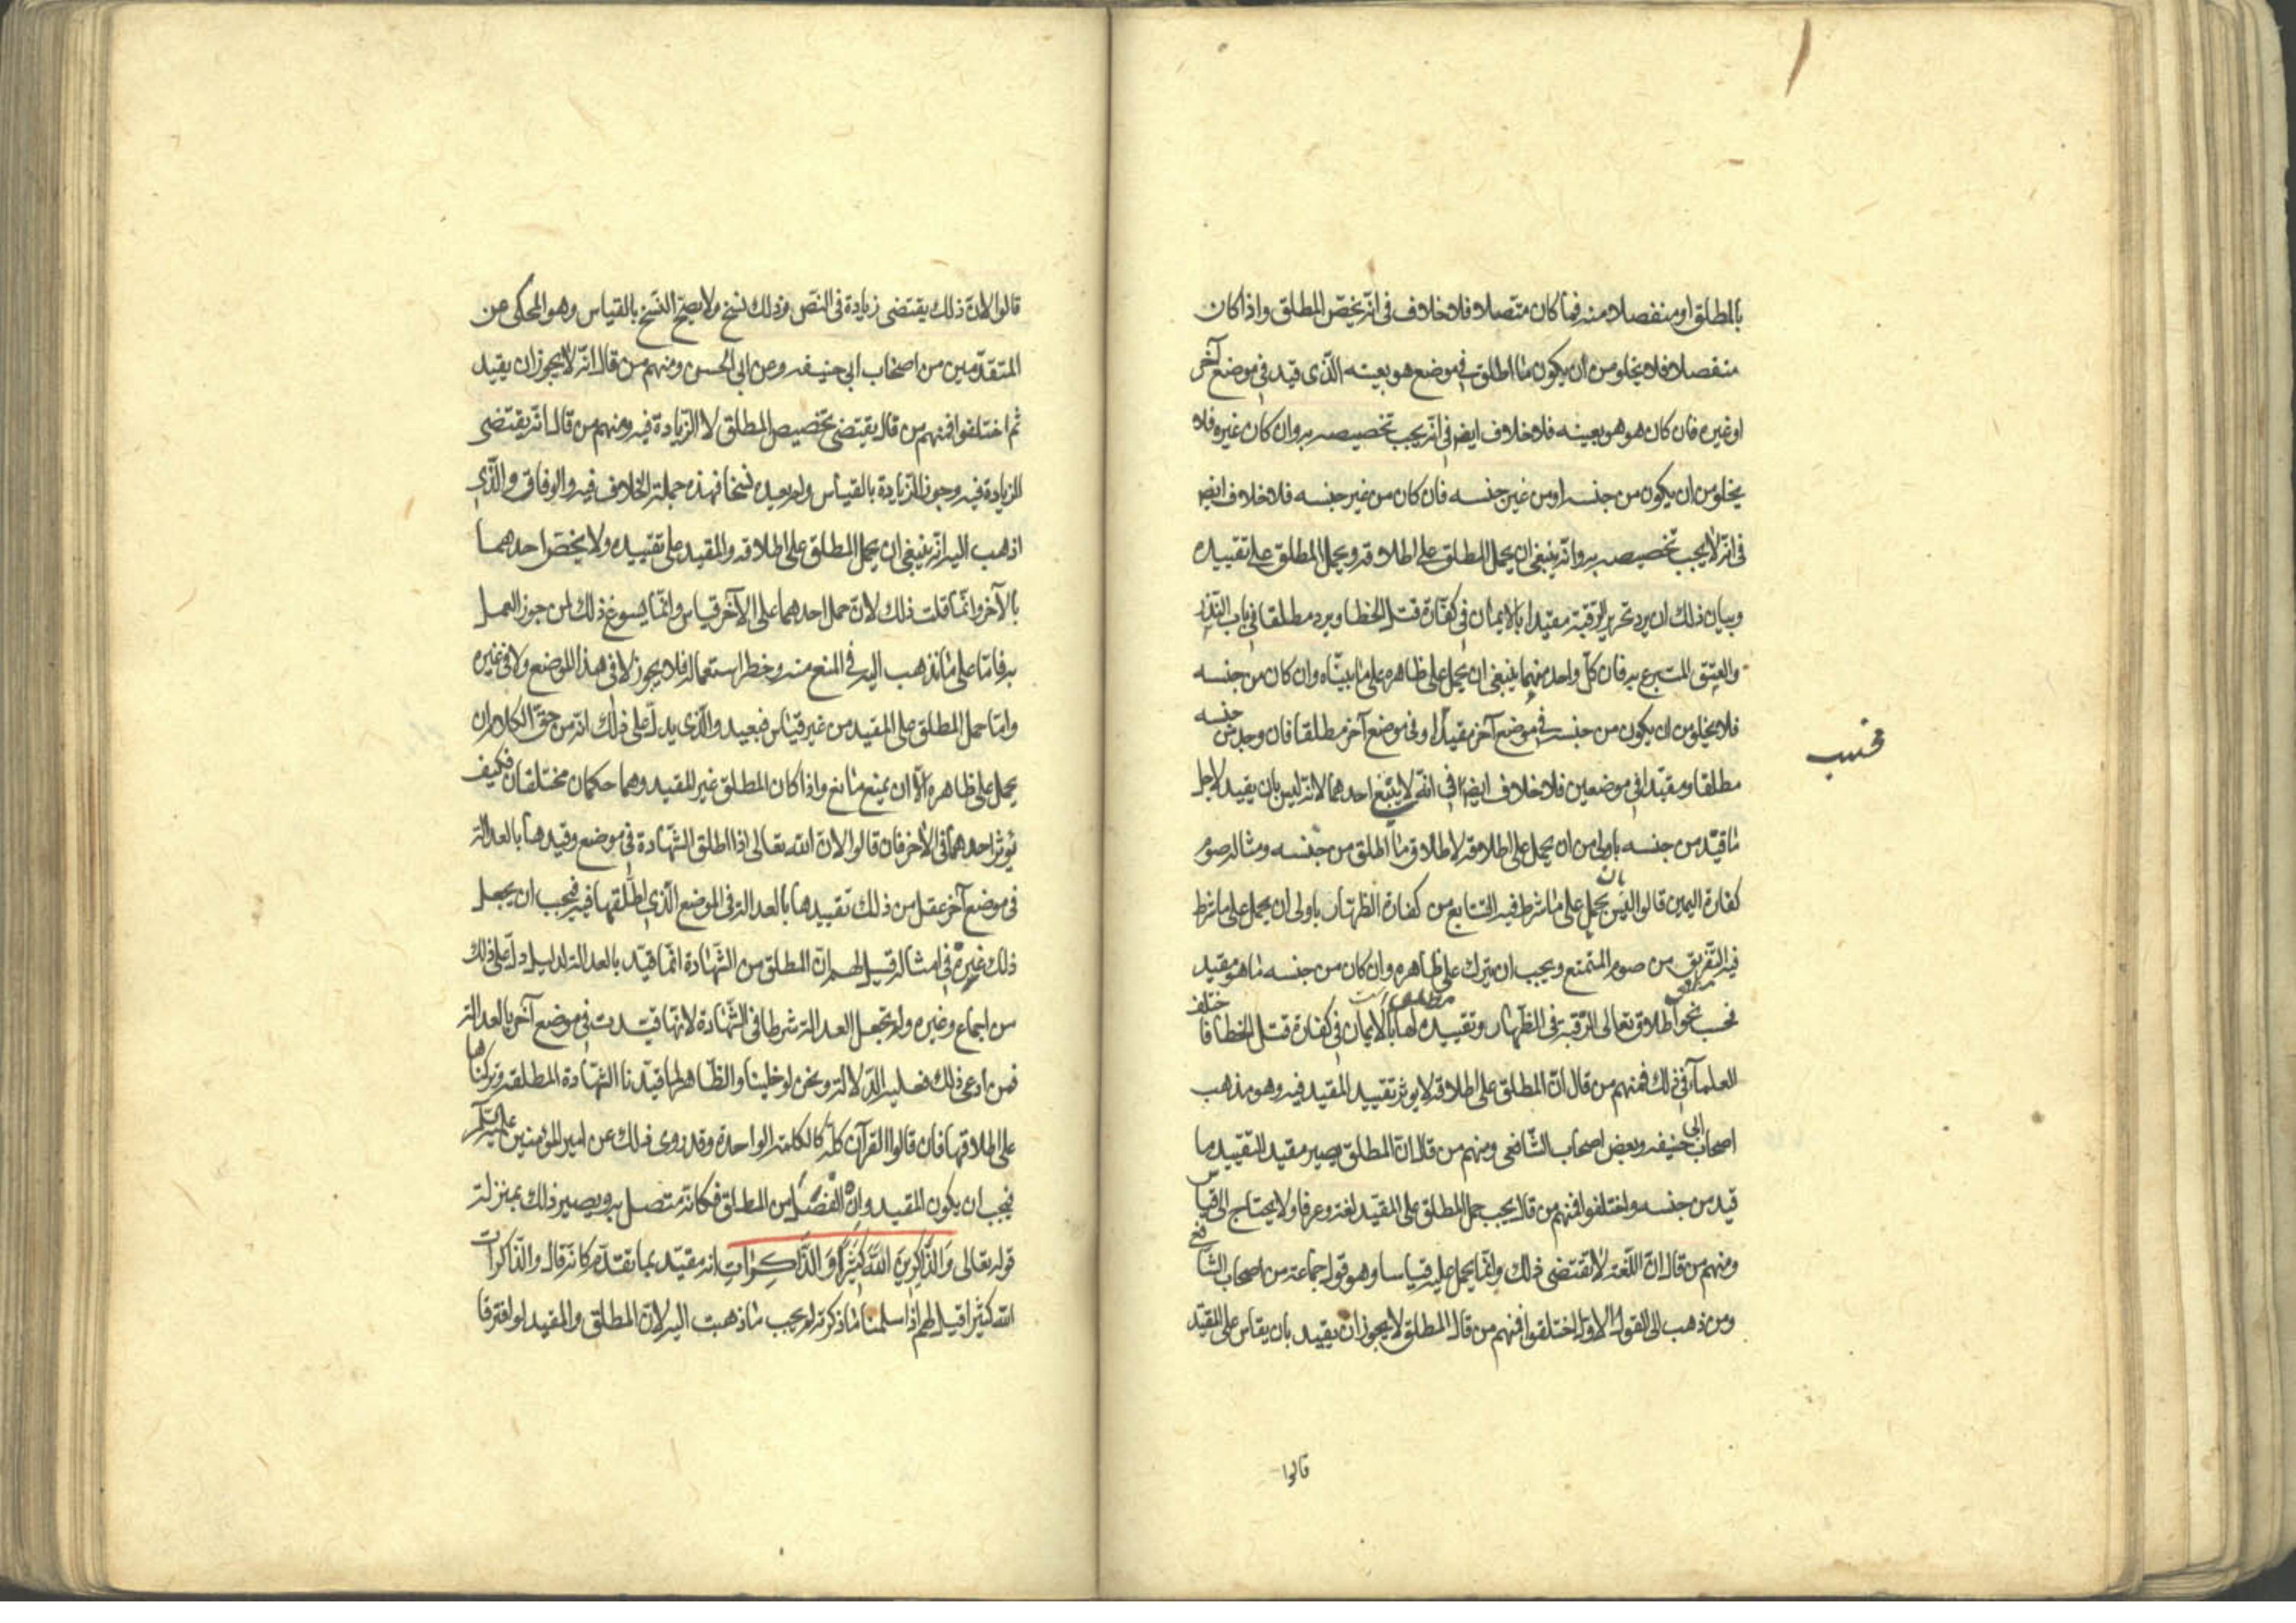 بالمطلق او منفصلا منه فما كان متّصلا فلا خلاف فى انّه يخصّ المطلق واذا كان
منفصلا فلا يخلو من ان يكون ما اطلق فى موضع هو بعينه الّذى قيد فى موضع آخر
او غيره فان كان هو هو بعينه فلا خلاف ايضا فى انّه يجب تخصيصه به وان كان غيره فلا
يخلو من ان يكون من جنسه او من غير جنسه فان كان من غير جنسه فلا خلاف ايضا
فى انّه لا يجب تخصيصه به وانّه ينبغى ان يحمل المطلق على اطلاقه ويحمل المطلق على تقييده
وبيان ذلك ان يرد تحرير الرّقبة مقيدا بالايمان فى كفّارة قتل الخطا ويرد مطلقا فى باب النّذر
والعتق المتبرع به فان كلّ واحد منهما ينبغى ان يحمل على ظاهره على ما بيّناه وان كان من جنسه
فلا يخلو من ان يكون من جنسه فى موضع آخر مقيدا او فى موضع آخر مطلقا فان وجد من جنسه
مطلقا ومقيّدا فى موضعين فلا خلاف ايضا فى انّه لا يتبع احدهما لانّه ليس بان يقيد لاجل
ما قيّد من جنسه باولى من ان يحمل على اطلاقه لاطلاق ما اطلق من جنسه ومثاله صوم
كفارة اليمين قالوا ليس بان يحمل على ما شرط فيه التتابع من كفارة الظهار باولى ان يحمل على ما شرط
فيه التّفريق من صوم المتمتع ويجب ان يترك على ظاهره وان كان من جنسه ما هو مقيد
فحسب نحو اطلاق تعالى الرّقبة فى الظّهار وتقييده لها بالايمان فى كفارة قتل الخطا فاختلف
العلماء فى ذلك فمنهم من قال انّ المطلق على اطلاقه لا يوثر تقييد المقيد فيه وهو مذهب
اصحاب ابى حنيفه وبعض اصحاب الشّافعى ومنهم من قال انّ المطلق يصير مقيد لتقييد ما
قيد من جنسه واختلفوا فمنهم من قال يجب حمل المطلق على المقيّد لغة وعرفا ولا يحتاج الى قياس
ومنهم من قال انّ اللّغة لا تقتضى ذلك وانّما يحمل عليه قياسا وهو قول جماعة من اصحاب الشافعى
ومن ذهب الى القول الاوّل اختلفوا فمنهم من قال المطلق لا يجوز ان يقيد بان يقاس على المقيّد
فحسب
قالوا
قالوا لانّ ذلك يقتضى زيادة فى النصّ وذلك نسخ ولا يصحّ النّسخ بالقياس وهو المحكى عن
المتقدّمين من اصحاب ابى حنيفه وعن ابى الحسن ومنهم من قال انّه لا يجوز ان يقيد
ثم اختلفوا فمنهم من قال يقتضى تخصيص المطلق لا الزّيادة فيه ومنهم من قال انّه يقتضى
الزيادة فيه وجوز الزيادة بالقياس ولم يعده نسخا فهذه جملة الخلاف فيه والوفاق والّذى
اذهب اليه انّه ينبغى ان يحمل المطلق على اطلاقه والمقيد على تقييده ولا يخصّ احدهما
بالآخر وانّما قلت ذلك لانّ حمل احدهما على الآخر قياس وانّما يسوغ ذلك لمن جوز العمل
به فامّا على ما نذهب اليه فى المنع منه وخطر استعماله فلا يجوز لا فى هذا الموضع ولا فى غيره
وامّا حمل المطلق على المقيد من غير قياس فبعيد والّذى يدلّ على ذلك انّه من حقّ الكلام ان
يحمل على ظاهره الّا ان يمنع مانع واذا كان المطلق غير المقيد وهما حكمان مختلفان فكيف
يوثر احدهما فى الآخر فان قالوا لانّ الله تعالى اذا اطلق الشّهادة فى موضع وقيدها بالعدالة
فى موضع آخر عقل من ذلك تقييدها بالعدالة فى الموضع الّذى اطلقها فيه فيجب ان يجعل
ذلك غيره فى امثاله قيل لهم انّ المطلق من الشّهادة انّما قيّد بالعدالة لدليل دلّ على ذلك
من اجماع وغيره ولم تجعل العدالة شرطا فى الشّهادة لانّها قيّدت فى موضع آخر بالعدالة
فمن ادعى ذلك فعليه الدّلالة ونحن لو خلينا والظّاهر لما قيّدنا الشّهادة المطلقه وتركناها
على اطلاقها فان قالوا القرآن كلّه كالكلمة الواحدة وقد روى ذلك عن امير المؤمنين عليه السّلم
فيجب ان يكون المقيد وان انفصل من المطلق فكانّه متّصل به ويصير ذلك بمنزلة
قوله تعالى وَالذَّاكِرِينَ اللَّهَ كَثِيرًا وَالذَّاكِرَاتِ انه مقيّد بما تقدّم كانّه قال والذّاكرات
الله كثيرا قيل لهم اذا سلمنا ما ذكرته لم يجب ما ذهبت اليه لانّ المطلق والمقيد لو افترقا